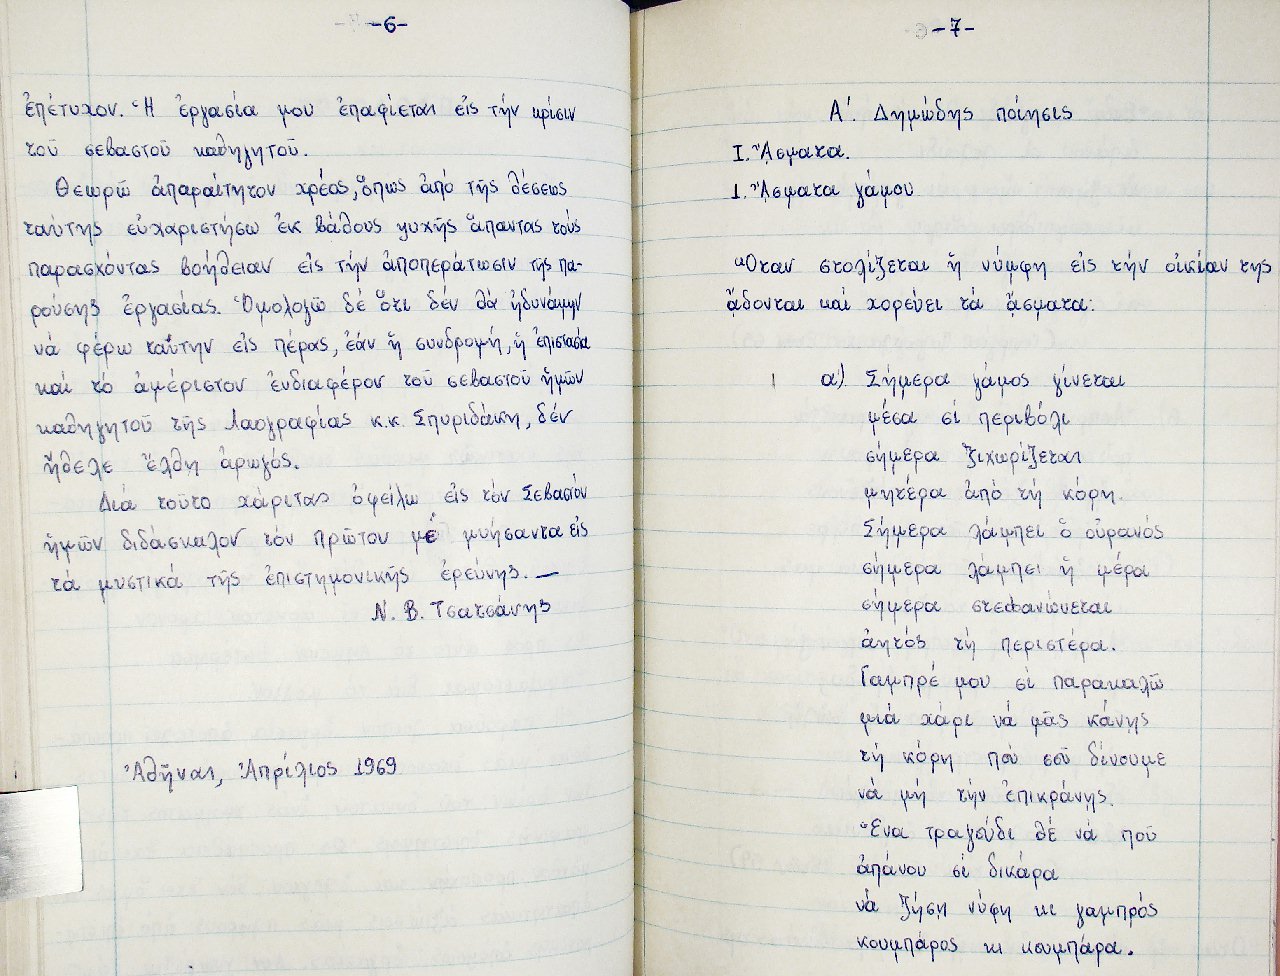 -6-
ἐπέτυχον. Ἡ ἐργασία μου ἐπαφίεται εἰς τήν κρίσιν
τοῦ σεβαστοῦ καθηγητοῦ.
Θεωρῶ ἀπαραίτητον χρέος, ὅπως ἀπό τῆς θέσεως
ταύτης εὐχαριστήσω ἐκ βάθους ψυχῆς ἅπαντας τούς
παρασχόντας βοήθειαν εἰς τήν ἀποπεράτωσιν τῆς πα-
ρούσης ἐργασίας. Ὁμολογῶ δέ ὅτι δέν θά ἠδυνάμην
νά φέρω ταύτην εἰς πέρας, ἐάν ἡ συνδρομή, ἡ ἐπιστασία
καί τό ἀμέριστον ἐνδιαφέρον τοῦ σεβαστοῦ ἡμῶν
καθηγητοῦ τῆς Λαογραφίας κ.κ. Σπυριδάκη, δέν
ἤθελε ἔλθη ἀρωγός.
Διά τοῦτο χάριτας ὀφείλω εἰς τόν Σεβαστόν
ἡμῶν διδάσκαλον τόν πρῶτον μέ μυήσαντα εἰς
τά μυστικά τῆς ἐπιστημονικῆς ἐρεύνης.—
Ν. Β. Τσατσάνης
Ἀθῆναι, Ἀπρίλιος 1969
-7-
Α΄. Δημώδης ποίησις
Ι. Ἄσματα.
1. Ἄσματα γάμου
Ὅταν στολίζεται ἡ νύμφη εἰς τήν οἰκίαν της
ᾄδονται καί χορεύει τά ᾄσματα:
α) Σήμερα γάμος γίνεται
μέσα σί περιβόλι
σήμερα ξιχωρίζεται
μητέρα ἀπό τή κόρη.
Σήμερα λάμπει ὁ οὐρανός
σήμερα λάμπει ἡ μέρα
σήμερα στεφανώνεται
ἀητός τή περιστέρα.
Γαμπρέ μου σί παρακαλῶ
μιά χάρι νά μᾶς κάνῃς
τή κόρη πού σοῦ δίνουμε
νά μή τήν ἐπικράνῃς.
Ἕνα τραγούδι θέ νά ποῦ
ἀπάνου σί δικάρα
νά ζήσῃ νύφη κι γαμπρός
κουμπάρος κι κουμπάρα.